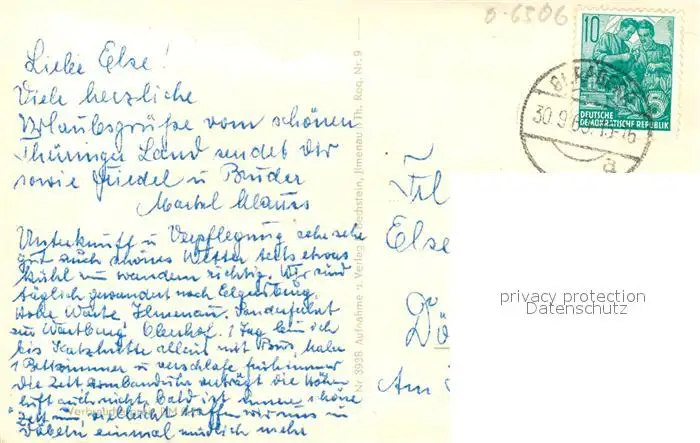 0-6506
Liebe Else!
Viele herzliche
Urlaubsgrüße vom schönen
Thüringer Land sendet dir
sowie Friedel u Bruder
Martel Klauss
Unterkunft u Verpflegung sehr sehr
gut auch schönes Wetter teils etwas
kühl zu wandern richtig. Wir sind
täglich gewandert nach Elgersburg,
Hohe Warte Ilmenau. Sonderfahrt
zur Wartburg Oberhof. 1 Tag bin ich
bis Katzhütte allein mit Bus, habe
1 Bettzimmer u verschlafe früh immer
die Zeit Armbanduhr verträgt die Höhen
luft auch nicht. Bald ist immer schöne
Zeit um, vielleicht treffen wir uns in
Döbeln einmal mündlich mehr
Nr 3938 Aufnahme u. Verlag Ilmenau /Th. Reg. Nr. 9
10
DEUTSCHE
DEMOKRATISCHE REPUBLIK
30.9.
a
Else
Am
privacy protection
Datenschutz